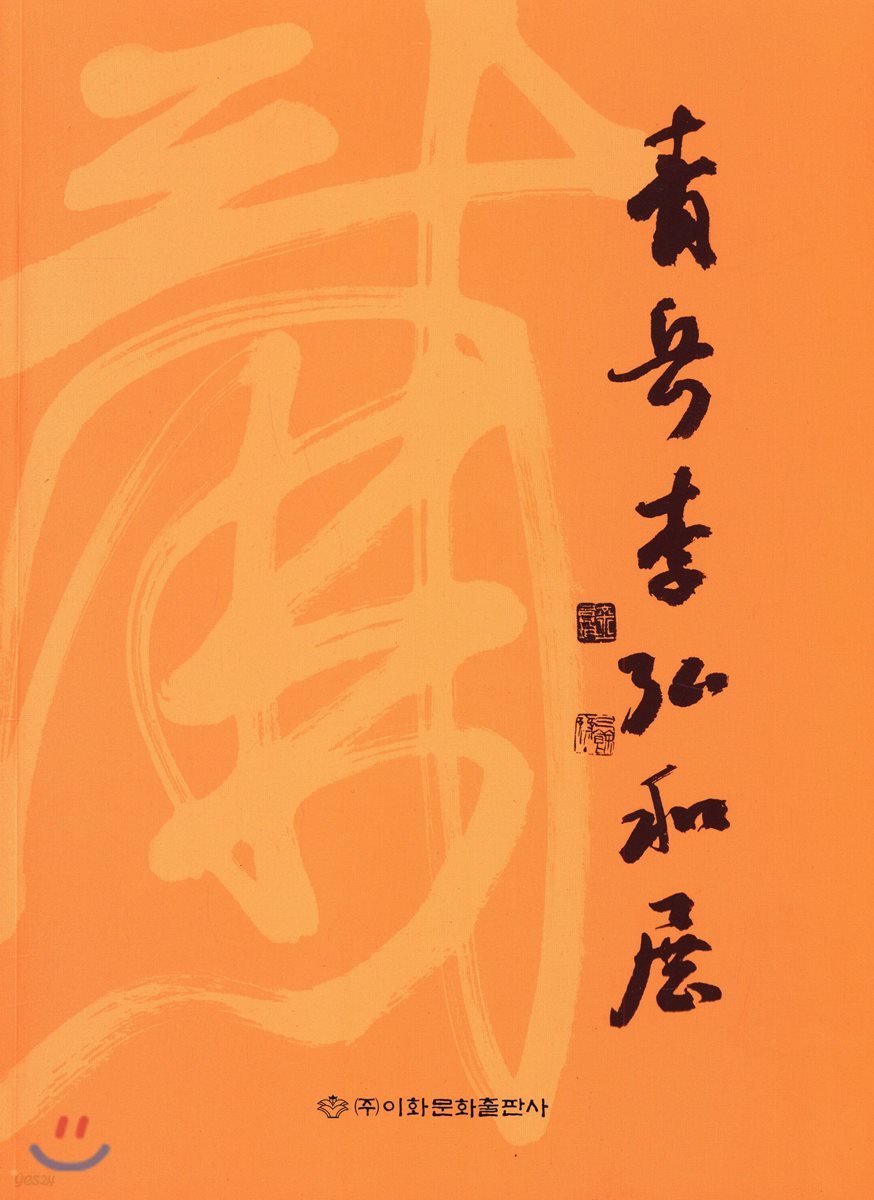 青岳李弘和展
(주)이화문화출판사
yes24